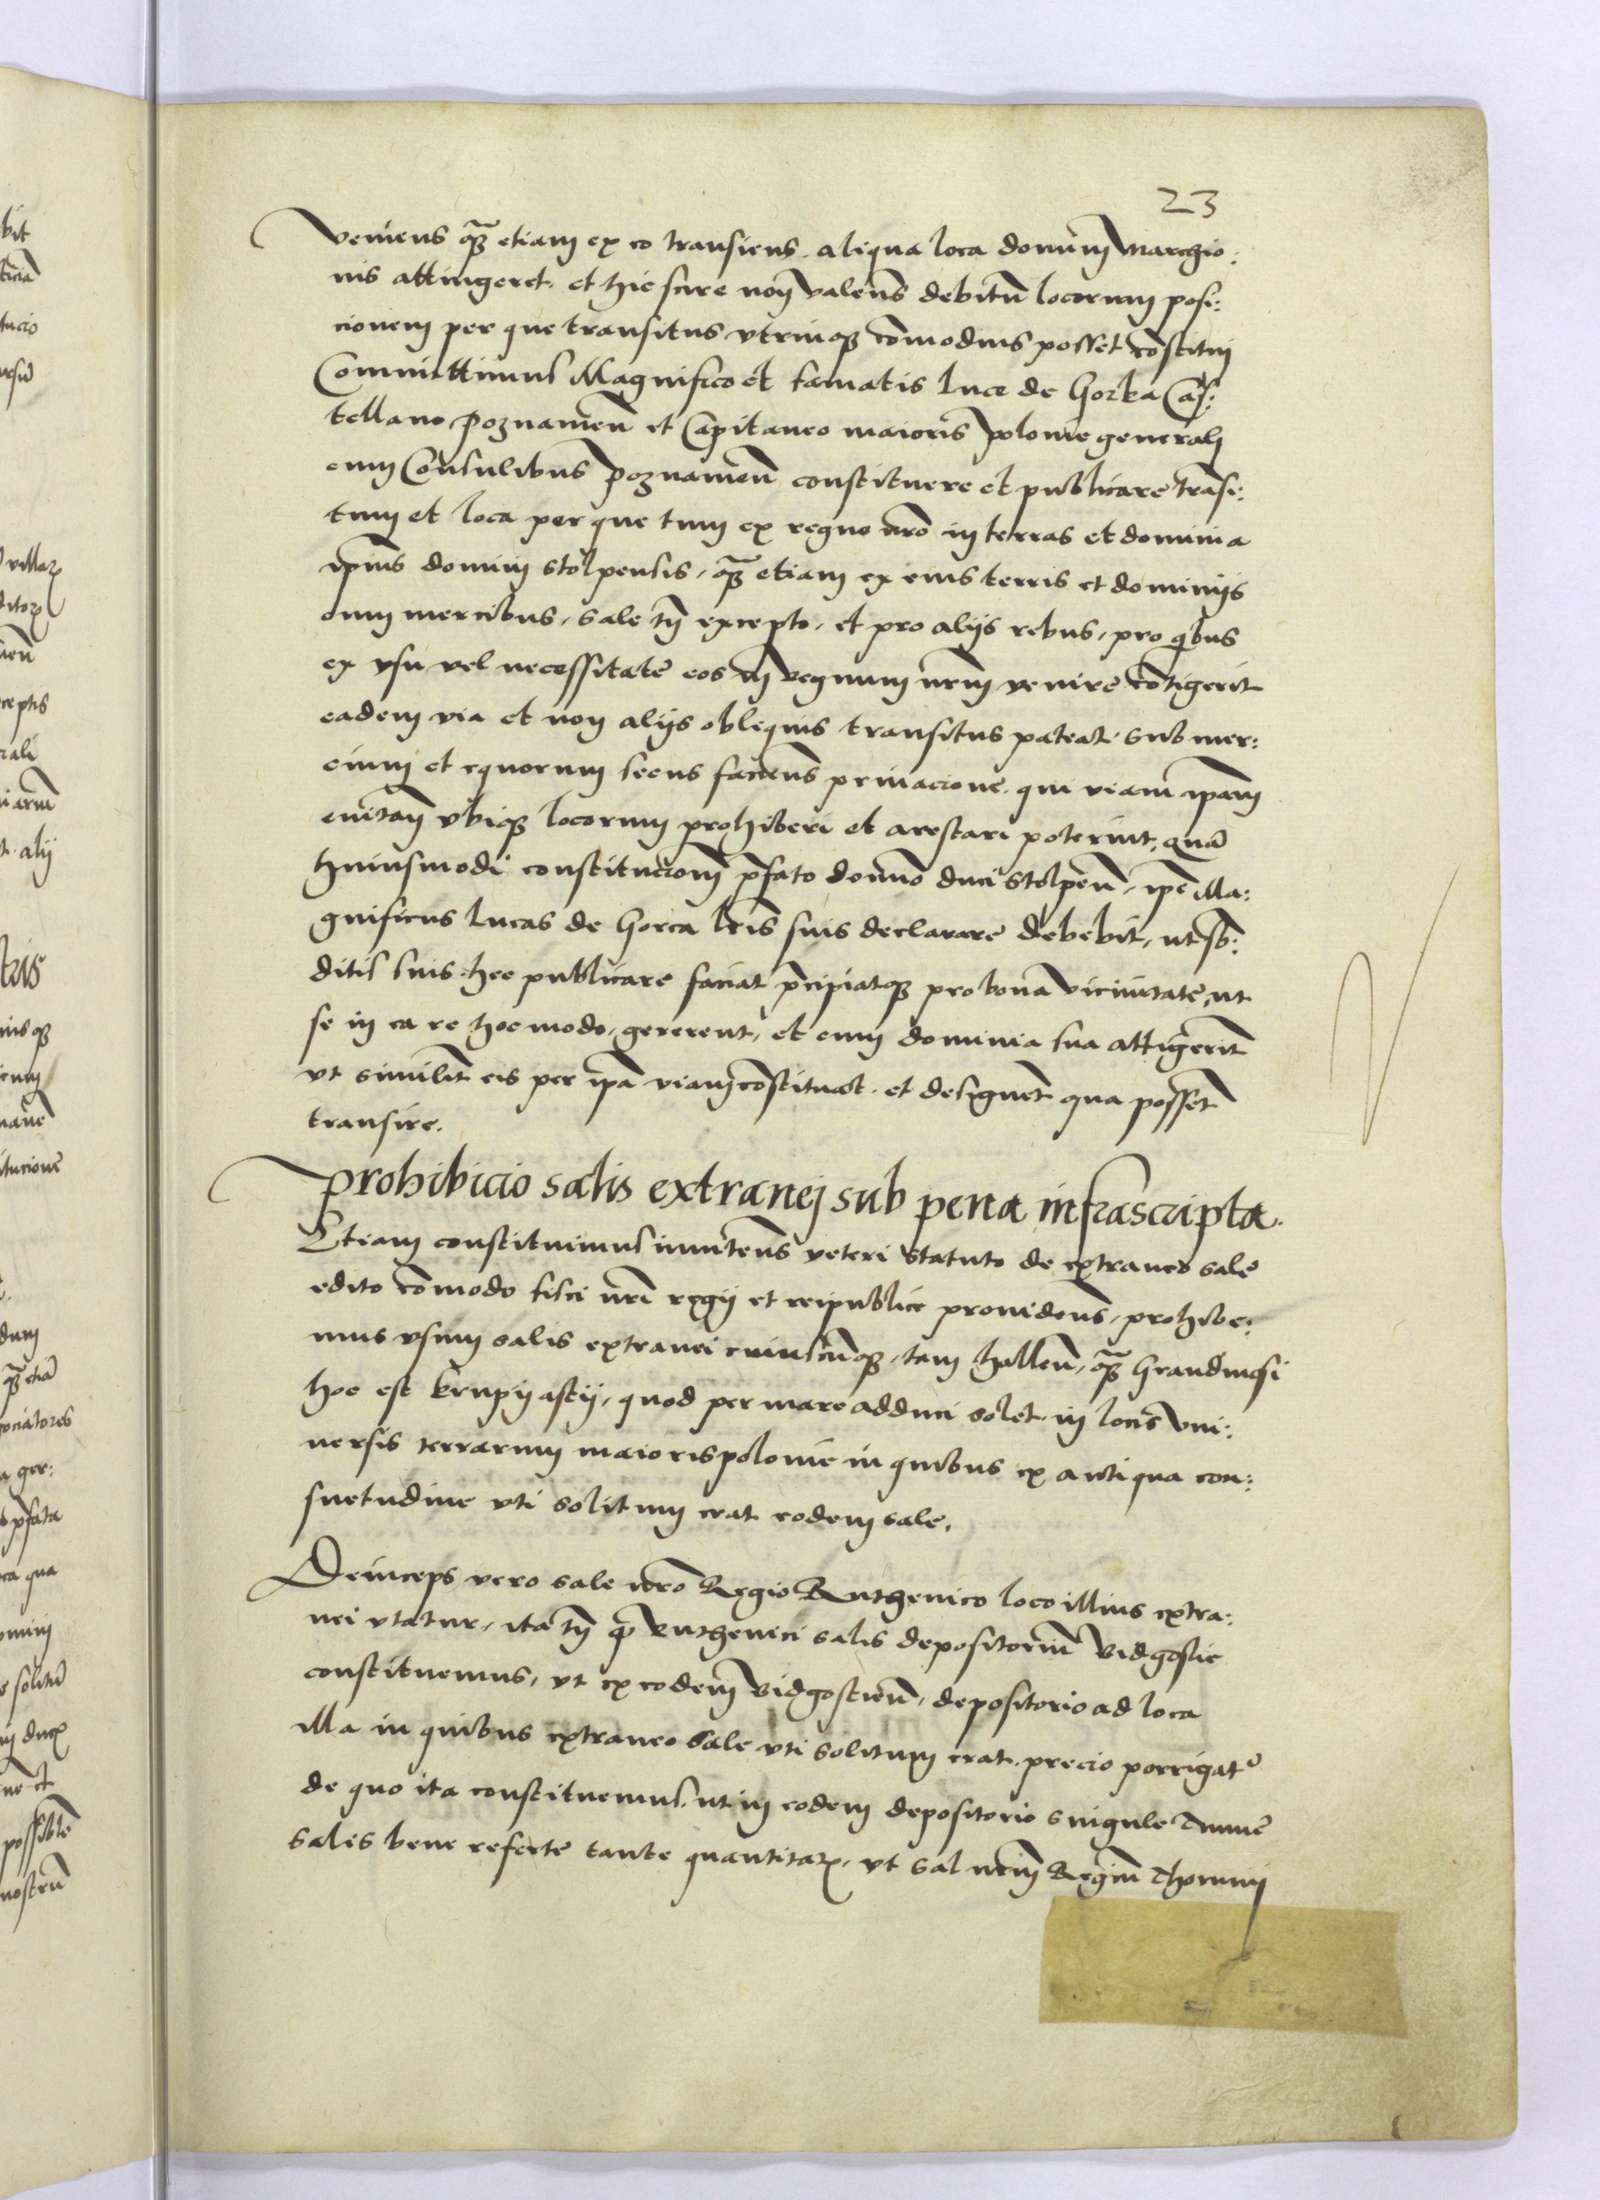 23
veniens q̃ꝫ etiam ex eo transiens aliqua loca domini marchio:
nis attingeret et hic scire non valens debitũ locorum posi:
cionem per que transitus vtrinqꝫ cõmodius posset cõstitui
Committimus Magnifico et famatis luce de Gorka Cas:
tellano Poznamen̄ et Capitaneo maioris polonie generali
cum Consulibus Poznanien̄ constituere et publicare trãsi:
tum et loca per que tum ex regno nr̃o in terras et dominia
ip̃ius domini stolpensis, q̃ꝫ etiam ex eius terris et dominijs
cum mercibus, sale tñ excepto, et pro alijs rebus, pro qᷓbus
ex vsu vel necessitate eos in regnum nr̃m venire cõtigerit
eadem via et non alijs obliquis transitus pateat sub mer:
cium et equorum secus faciens priuacione qui viam ip̃am
euitan̄ vbiqꝫ locorum prohiberi et arestari poterint, quã
huiusmodi constitucionem p̃fato domino duci stolpen̄, ip̃e Ma:
gnificus lucas de Gorca lr̃is suis declarare debebit, ut sb̃:
ditis suis hec publicare faciat p̃cipiatqꝫ pro bona vicinitate, ut
se in ea re hoc modo gererent, et cum dominia sua attigerit
vt similit̃ eis per ip̃a viam cõstituat et designet qua posset
transire.
Prohibicio salis extranej sub pena infrascripta.
Etiam constituimus innitens veteri statuto de extraneo sale
edito cõmodo fisci nr̃i regij et reipublice prouidens, prohibe:
mus vsum salis extranei cuiuscũqꝫ, tam hallen̄, q̃ꝫ Grandinosi
hoc est krupijastij, quod per mare adduci solet in locis vni:
uersis terrarum maioris polonie in quibus ex antiqua con:
suetudine vti solitum erat eodem sale.
Deinceps vero sale nr̃o Regio Ruthenico loco illius extra:
nei vtatur, ita tñ q̃ Ruthenici salis depositorium Bidgostie
constituemus, vt ex eodem Bidgostien̄, depositorio ad loca
illa in quibus extraneo sale vti solitum erat precio porrigat̃
de quo ita constituemus, ut in eodem depositorio singule Tunne
salis bene referte tante quantitatꝭ, vt sal nr̃m Regiũ Thorunij